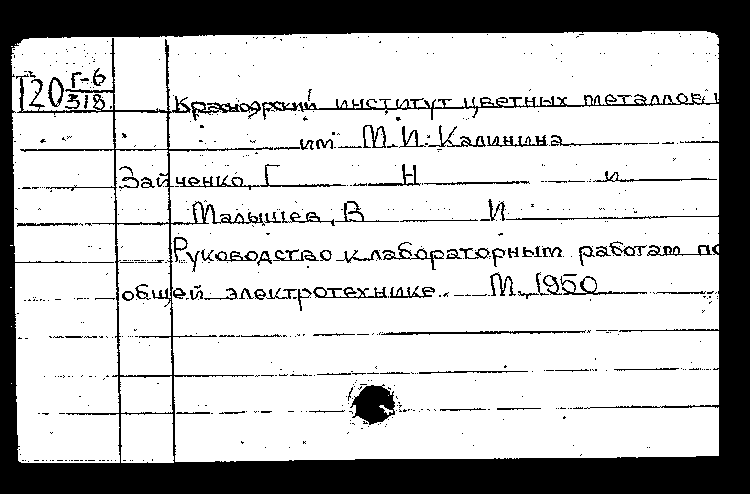 120 Г-6
318
Красноярский институт цветных металлов и
им М.И. Калинина
Зайченко, Г Н и
Малышев, В И
Руководство к лабораторным работам по
общей электротехнике. М., 1950